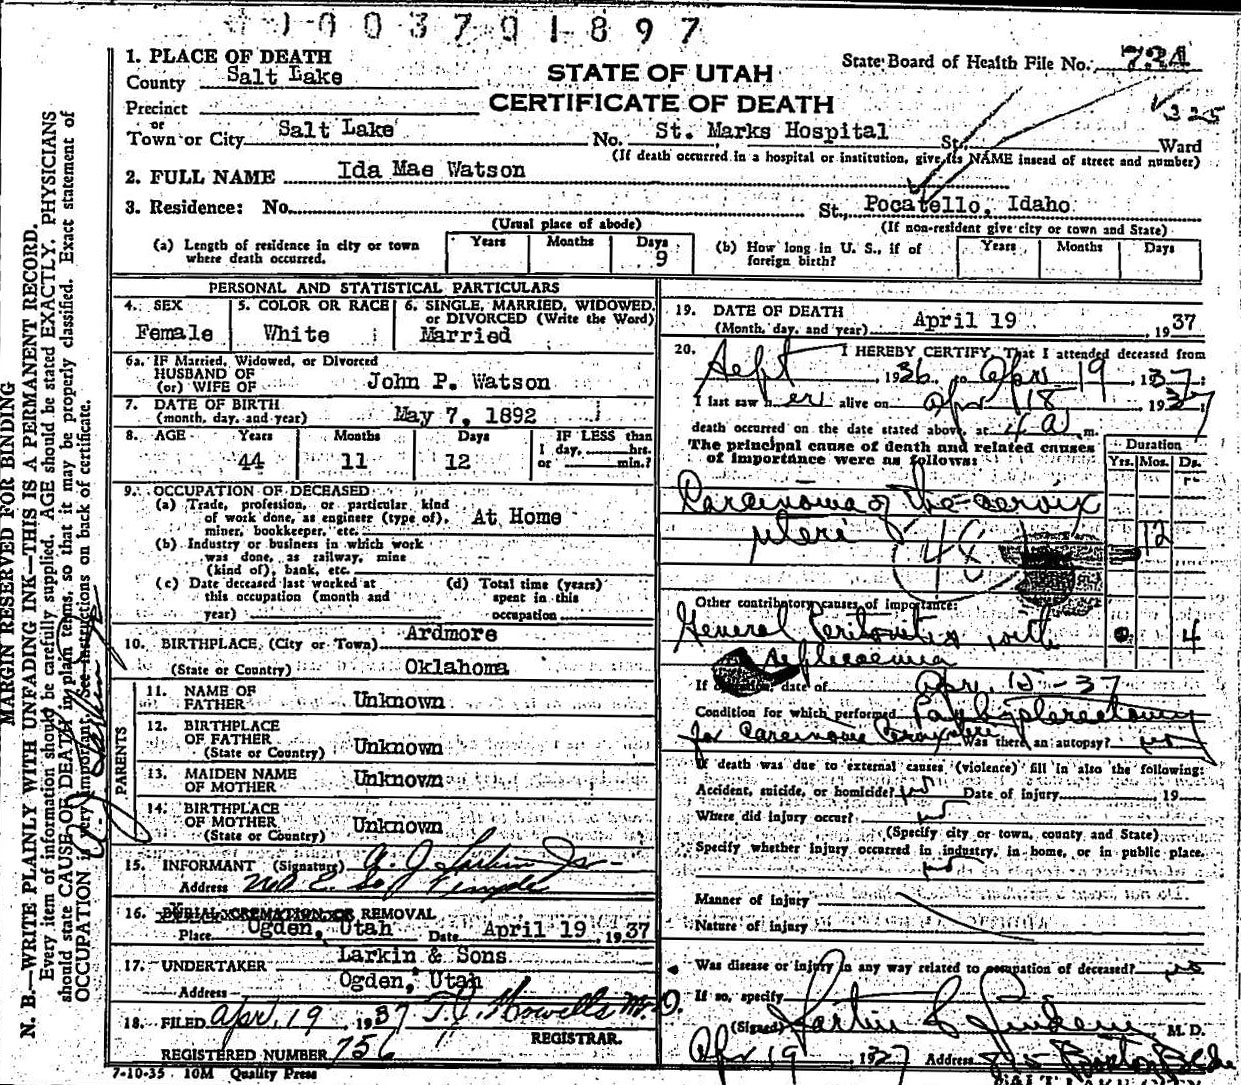 1003701897
1. PLACE OF DEATH
County Salt Lake
STATE OF UTAH
CERTIFICATE OF DEATH
State Board of Health File No. 721
325
Precinct
or
Town or City Salt Lake No. St. Marks Hospital St. Ward
(If death occurred in a hospital or institution, give its NAME instead of street and number)
2. FULL NAME Ida Mae Watson
3. Residence: No. St., Pocatello, Idaho
(Usual place of abode) (If non-resident give city or town and State)
(a) Length of residence in city or town where death occurred. Years Months Days 9
(b) How long in U. S., if of foreign birth? Years Months Days
PERSONAL AND STATISTICAL PARTICULARS
4. SEX Female
5. COLOR OR RACE White
6. SINGLE, MARRIED, WIDOWED, or DIVORCED (Write the Word) Married
6a. IF Married, Widowed, or Divorced
HUSBAND OF
(or) WIFE OF John P. Watson
7. DATE OF BIRTH
(month, day, and year) May 7, 1892
8. AGE Years Months Days IF LESS than
44 11 12 1 day, hrs. or min.?
9. OCCUPATION OF DECEASED
(a) Trade, profession, or particular kind
of work done, as engineer (type of), At Home
miner, bookkeeper, etc.
(b) Industry or business in which work
was done, as railway, mine
(kind of), bank, etc.
(c) Date deceased last worked at this occupation (month and year)
(d) Total time (years) spent in this occupation
10. BIRTHPLACE, (City or Town) Ardmore
(State or Country) Oklahoma
PARENTS
11. NAME OF FATHER Unknown
12. BIRTHPLACE OF FATHER (State or Country) Unknown
13. MAIDEN NAME OF MOTHER Unknown
14. BIRTHPLACE OF MOTHER (State or Country) Unknown
15. INFORMANT (Signature) A. J. Larkin Jr
Address So Temple
16. BURIAL CREMATION OR REMOVAL
Place Ogden, Utah Date April 19, 1937
17. UNDERTAKER Larkin & Sons
Address Ogden, Utah
18. FILED Apr. 19, 1937 T. J. Howells M. D.
REGISTRAR.
REGISTERED NUMBER 756
7-10-35 10M Quality Press
19. DATE OF DEATH
(Month, day, and year) April 19, 1937
20. I HEREBY CERTIFY, That I attended deceased from
Sept, 1936, to Apr 19, 1937;
I last saw her alive on Apr 18, 1937
death occurred on the date stated above, at 4 a m.
The principal cause of death and related causes of importance were as follows:
Duration
Yrs. Mos. Ds.
Carcinoma of the cervix
uteri 12
48
Other contributory causes of importance:
General Peritonitis with 4
Septicaemia
If operation, date of Apr 12-37
Condition for which performed Panhysterectomy
for Carcinoma Cervix Was there an autopsy? no
If death was due to external causes (violence) fill in also the following:
Accident, suicide, or homicide? no Date of injury 19
Where did injury occur? no
(Specify city or town, county and State)
Specify whether injury occurred in industry, in home, or in public place.
no
Manner of injury
Nature of injury
Was disease or injury in any way related to occupation of deceased? no
If so, specify
(Signed) M. D.
Apr 19, 1937 Address Boston Bldg
MARGIN RESERVED FOR BINDING
N. B.—WRITE PLAINLY WITH UNFADING INK—THIS IS A PERMANENT RECORD.
Every item of information should be carefully supplied. AGE should be stated EXACTLY. PHYSICIANS
should state CAUSE OF DEATH in plain terms, so that it may be properly classified. Exact statement of
OCCUPATION is very important. See instructions on back of certificate.